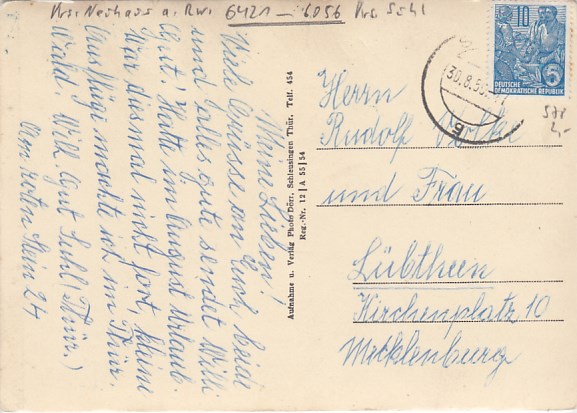 Krs. Neuhaus a. Rw. 6421 – 6056 Krs. Suhl
Meine Lieben!
Viele Grüsse an Euch beide
und Alles gute sendet Willi
Gut! Hatte im August Urlaub.
War diesmal nicht fort, kleine
Ausflüge machte ich im Thür.
Wald. Will. Gut Suhl (Thür.)
Am roten Stein 24
Aufnahme u. Verlag Photo Dörr, Schleusingen Thür. Telf. 454
Reg.-Nr. 12 | A 55 | 54
10
DEUTSCHE
DEMOKRATISCHE REPUBLIK
30.8.56
578
2,-
Herrn
Rudolf
und Frau
Lübtheen
Kirchenplatz 10
Mecklenburg